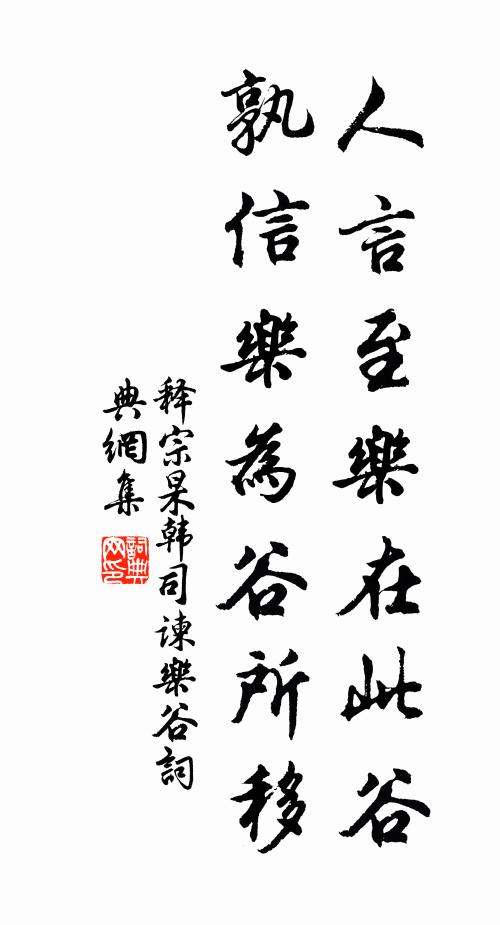 人言至樂在此谷
孰信樂為谷所移
释宗杲韩司諫樂谷詞
典網集
詞典
网印